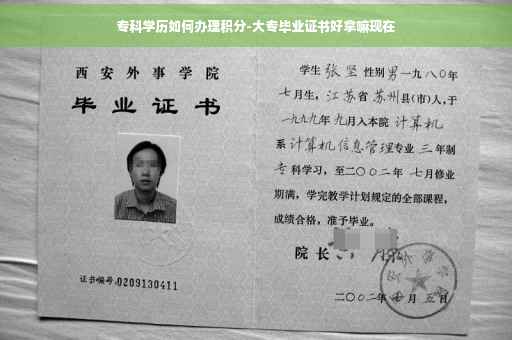 专科学历如何办理积分-大专毕业证书好拿嘛现在
西安外事学院
毕业证书
证书编号:0209130411
学生 张坚 性别 男 一九八〇年
七月生, 江苏省 苏州县(市)人,于
一九九九年 九月入本院 计算机
系 计算机信息管理专业 三 年制
专科学习,至二〇〇二年 七月修业
期满,学完教学计划规定的全部课程,
成绩合格,准予毕业。
院长
二〇〇二年 七月 五日